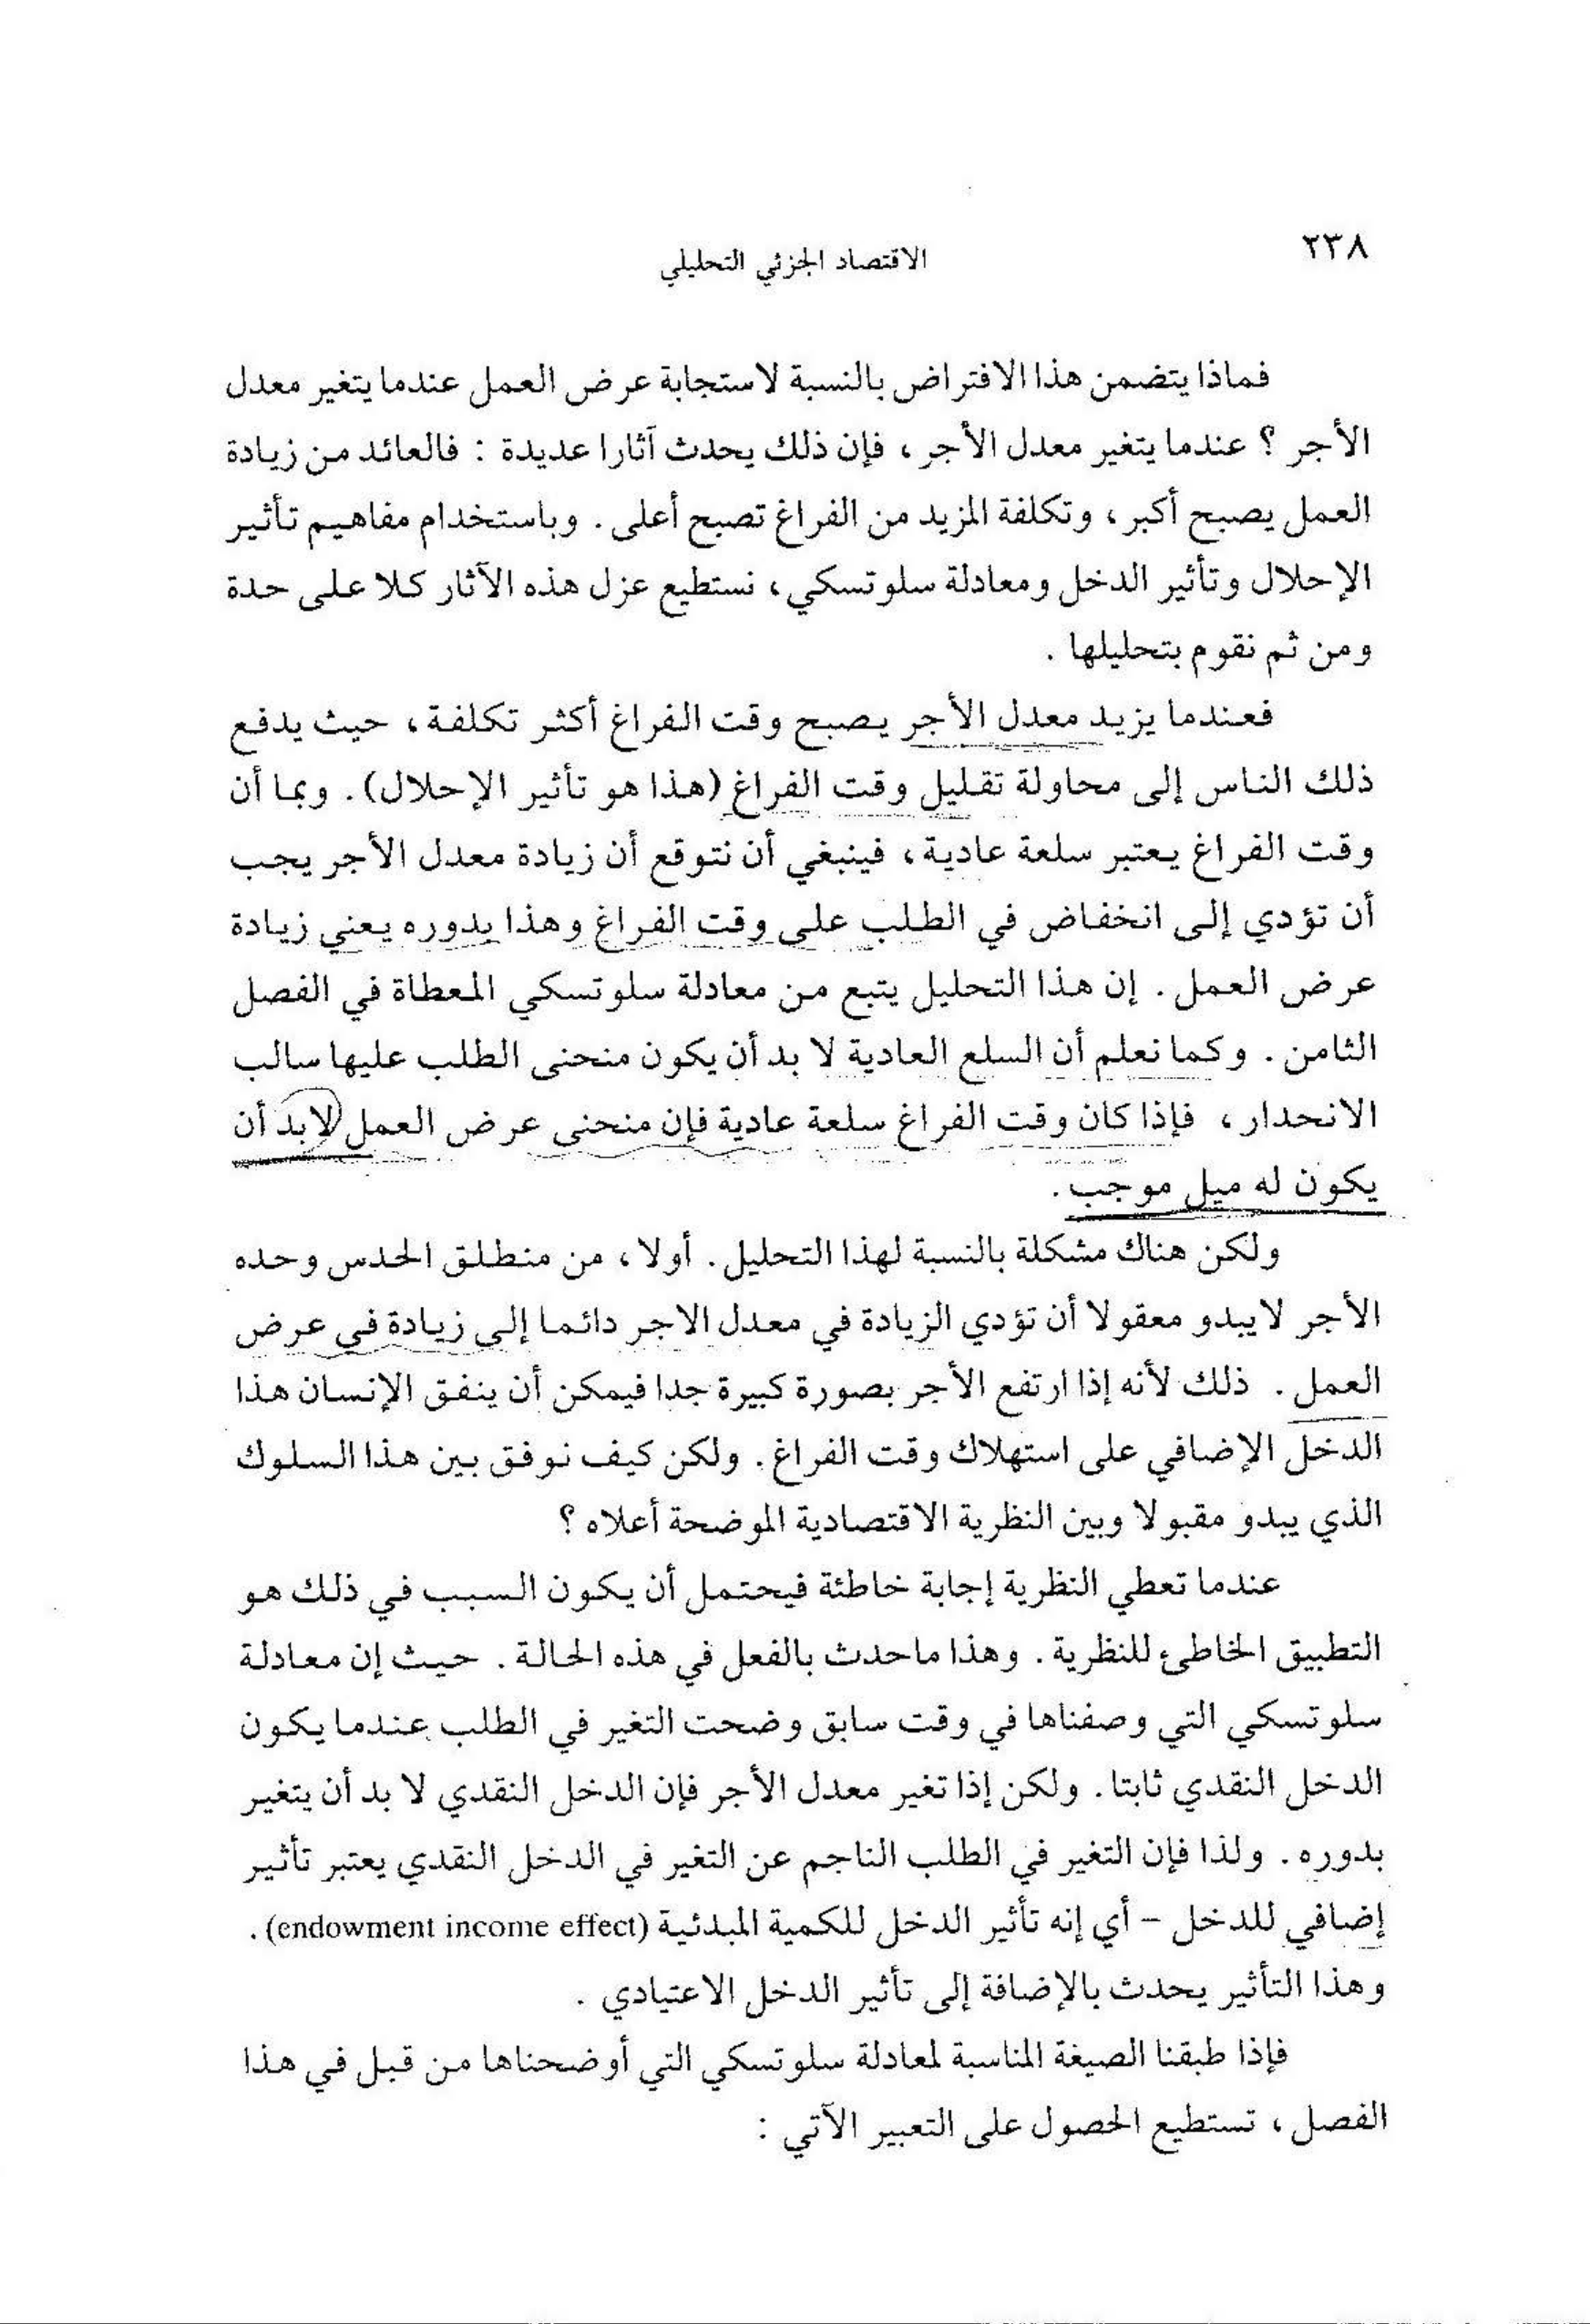 ٢٣٨
الاقتصاد الجزئي التحليلي
فماذا يتضمن هذا الافتراض بالنسبة لاستجابة عرض العمل عندما يتغير معدل
الأجر ؟ عندما يتغير معدل الأجر ، فإن ذلك يحدث آثارا عديدة : فالعائد من زيادة
العمل يصبح أكبر ، وتكلفة المزيد من الفراغ تصبح أعلى . وباستخدام مفاهيم تأثير
الإحلال وتأثير الدخل ومعادلة سلوتسكي ، نستطيع عزل هذه الآثار كلا على حدة
ومن ثم نقوم بتحليلها .
فعندما يزيد معدل الأجر يصبح وقت الفراغ أكثر تكلفة ، حيث يدفع
ذلك الناس إلى محاولة تقليل وقت الفراغ (هذا هو تأثير الإحلال) . وبما أن
وقت الفراغ يعتبر سلعة عادية ، فينبغي أن نتوقع أن زيادة معدل الأجر يجب
أن تؤدي إلى انخفاض في الطلب على وقت الفراغ وهذا بدوره يعني زيادة
عرض العمل . إن هذا التحليل يتبع من معادلة سلوتسكي المعطاة في الفصل
الثامن . وكما نعلم أن السلع العادية لا بد أن يكون منحنى الطلب عليها سالب
الانحدار ، فإذا كان وقت الفراغ سلعة عادية فإن منحنى عرض العمل لابد أن
يكون له ميل موجب .
ولكن هناك مشكلة بالنسبة لهذا التحليل . أولا ، من منطلق الحدس وحده
الأجر لا يبدو معقولا أن تؤدي الزيادة في معدل الاجر دائما إلى زيادة في عرض
العمل . ذلك لأنه إذا ارتفع الأجر بصورة كبيرة جدا فيمكن أن ينفق الإنسان هذا
الدخل الإضافي على استهلاك وقت الفراغ . ولكن كيف نوفق بين هذا السلوك
الذي يبدو مقبولا وبين النظرية الاقتصادية الموضحة أعلاه ؟
عندما تعطي النظرية إجابة خاطئة فيحتمل أن يكون السبب في ذلك هو
التطبيق الخاطئ للنظرية . وهذا ماحدث بالفعل في هذه الحالة . حيث إن معادلة
سلوتسكي التي وصفناها في وقت سابق وضحت التغير في الطلب عندما يكون
الدخل النقدي ثابتا . ولكن إذا تغير معدل الأجر فإن الدخل النقدي لا بد أن يتغير
بدوره . ولذا فإن التغير في الطلب الناجم عن التغير في الدخل النقدي يعتبر تأثير
إضافي للدخل - أي إنه تأثير الدخل للكمية المبدئية (endowment income effect) .
وهذا التأثير يحدث بالإضافة إلى تأثير الدخل الاعتيادي .
فإذا طبقنا الصيغة المناسبة لمعادلة سلوتسكي التي أوضحناها من قبل في هذا
الفصل ، تستطيع الحصول على التعبير الآتي :